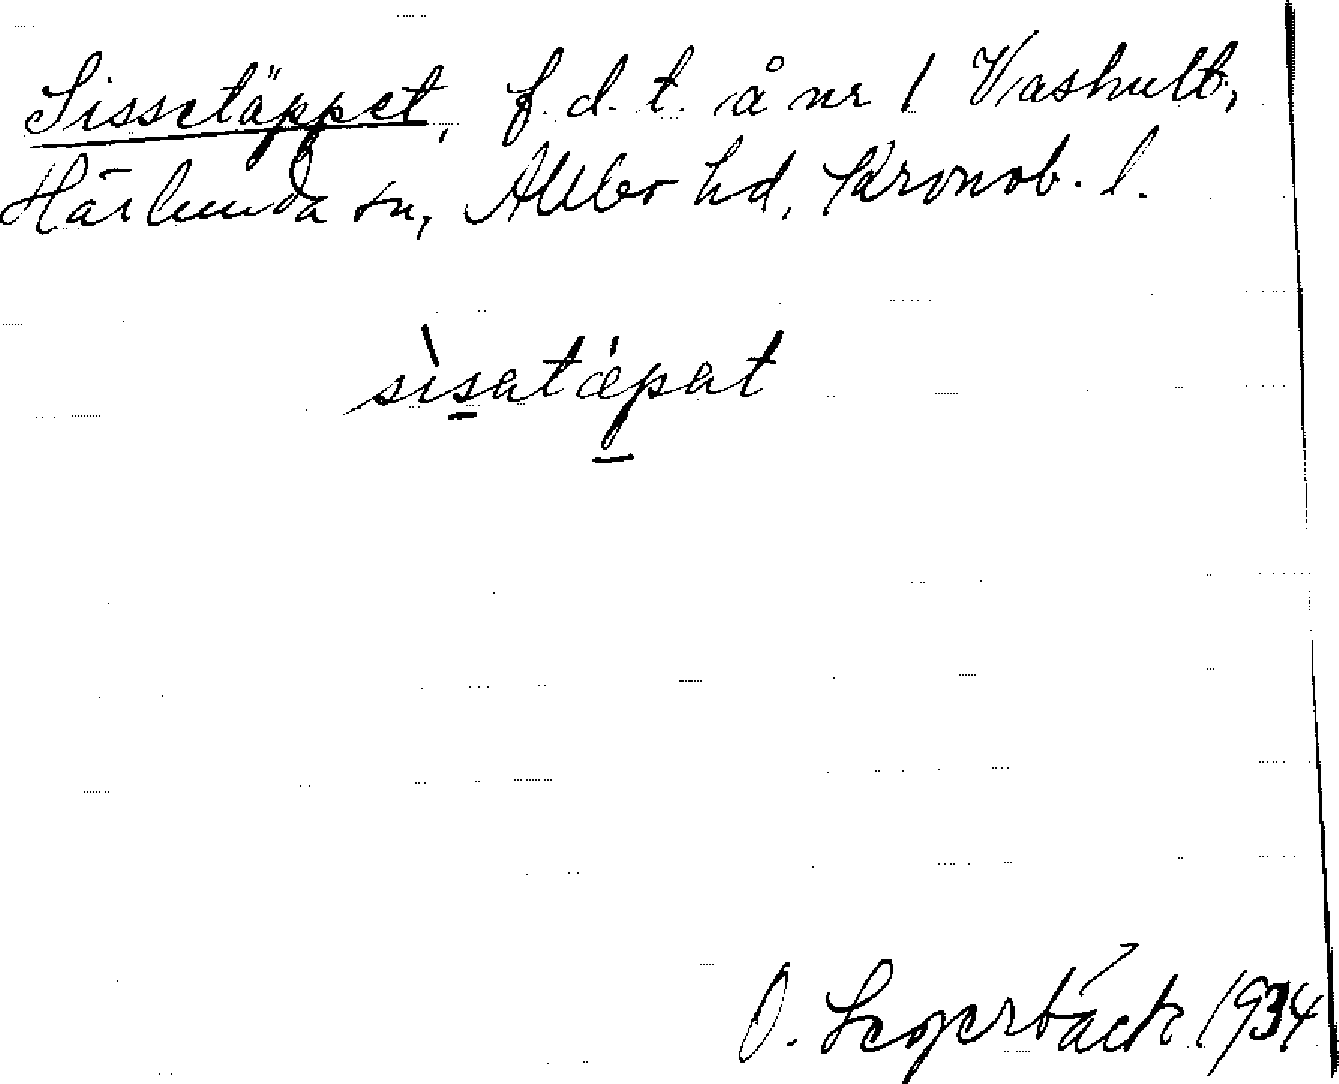 Sissetäppet, f.d.t. å nr 1 Vashult,
Härlunda sn, Allbo hd, Kronob. l.
sìsatǽpat
O. Segerbäck 1934